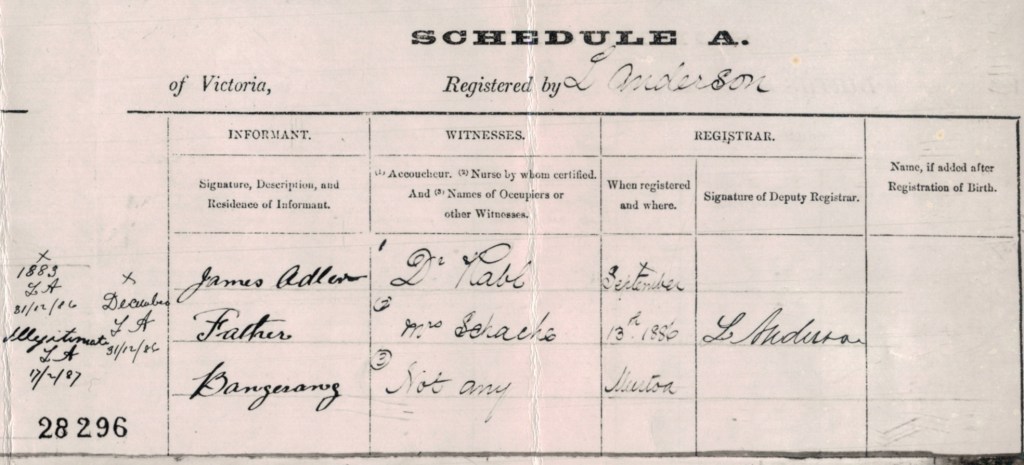 SCHEDULE A.
of Victoria, Registered by L Anderson
INFORMANT. WITNESSES. REGISTRAR.
Signature, Description, and
Residence of Informant.
(1) Accoucheur. (2) Nurse by whom certified.
And (3) Names of Occupiers or
other Witnesses.
When registered
and where.
Signature of Deputy Registrar.
Name, if added after
Registration of Birth.
x
1883
L A
31/12/86
x
December
L A
31/12/86
Illegitimate
L A
17/2/87
James Adler
Father
Bangerang
1 Dr Rabl
2 Mrs Schache
3 Not any
September
13th 1886
Murtoa
L Anderson
28296